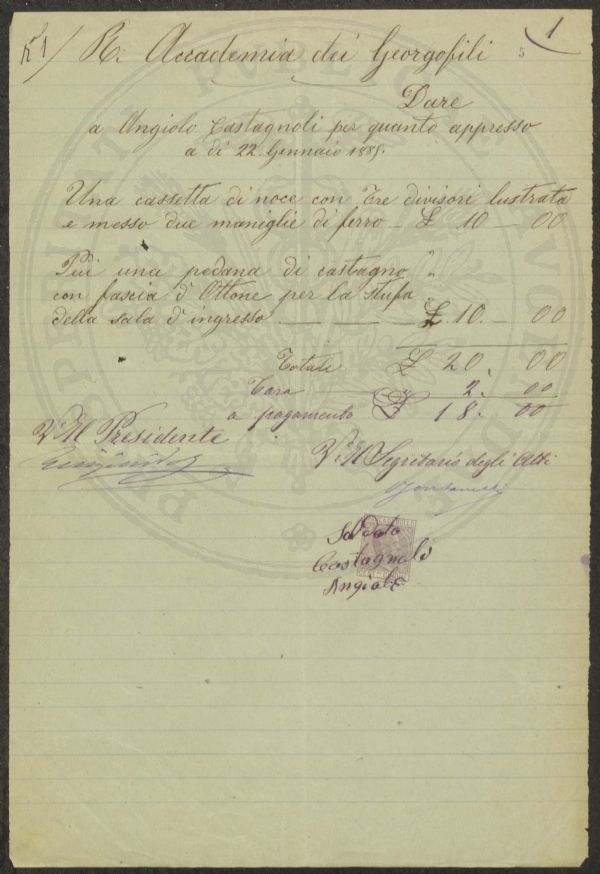 N 1 / R. Accademia dei Georgofili 5 1
Dare
a Angiolo Castagnoli per quanto appresso
a di 22. Gennaio 1885.
Una cassetta di noce con Tre divisori lustrata
e messo due maniglie di ferro — £ 10 — 00
Piú una pedana di castagno
con fascia d'Ottone per la stufa
della sala d'ingresso — £ 10. — 00
Totale £ 20. 00
Tara 2. 00
a pagamento £ 18. 00
V. Il Presidente
V. Il Segretario degli Atti
Saldato
Castagnoli
Angiolo